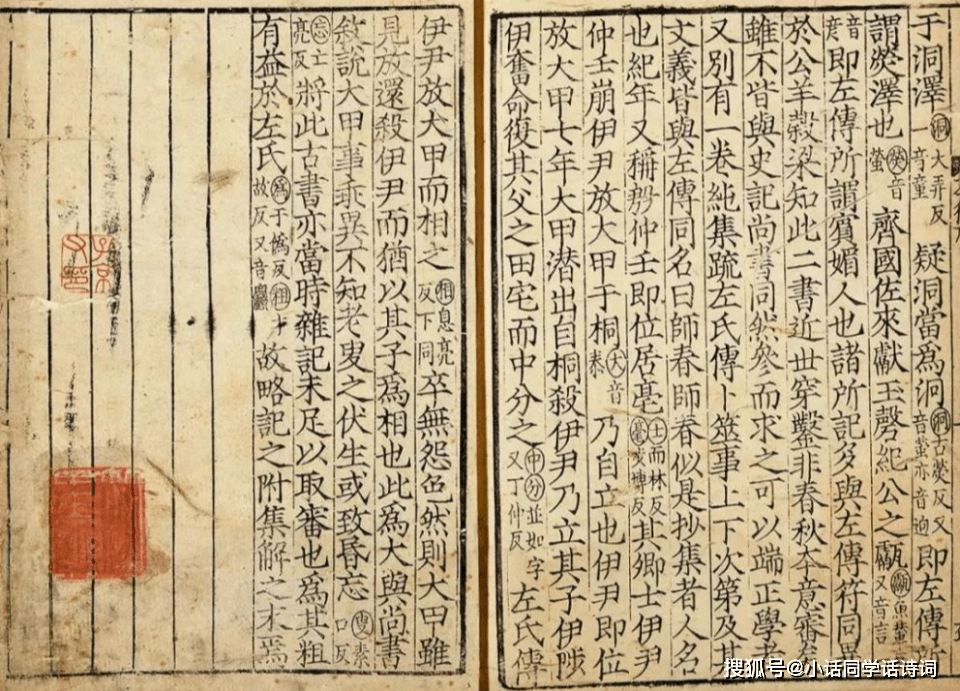 于洞澤洞大弄反一音童疑洞當爲泂泂古熒反又音螢亦音迥即左傳所
謂熒澤也熒音螢齊國佐來獻玉磬紀公之甗甗魚輦反又音言
音彥即左傳所謂賓媚人也諸所記多與左傳符同異
於公羊穀梁知此二書近世穿鑿非春秋本意審矣
雖不皆與史記尚書同然參而求之可以端正學者
又別有一卷純集疏左氏傳卜筮事上下次第及其
文義皆與左傳同名曰師春師春似是抄集者人名
也紀年又稱殷仲壬即位居亳壬而林反亳步博反其卿士伊尹
仲壬崩伊尹放大甲于桐大音泰乃自立也伊尹即位
放大甲七年大甲潛出自桐殺伊尹乃立其子伊陟
伊奮命復其父之田宅而中分之中分並如字又丁仲反左氏傳
伊尹放大甲而相之相息亮反下同卒無怨色然則大甲雖
見放還殺伊尹而猶以其子爲相也此爲大與尚書
敘說大甲事乖異不知老叟之伏生或致昏忘叟素口反
忘亡亮反將此古書亦當時雜記未足以取審也爲其粗
有益於左氏爲于僞反粗才故反又音麤故略記之附集解之末焉
搜狐号@小话同学话诗词